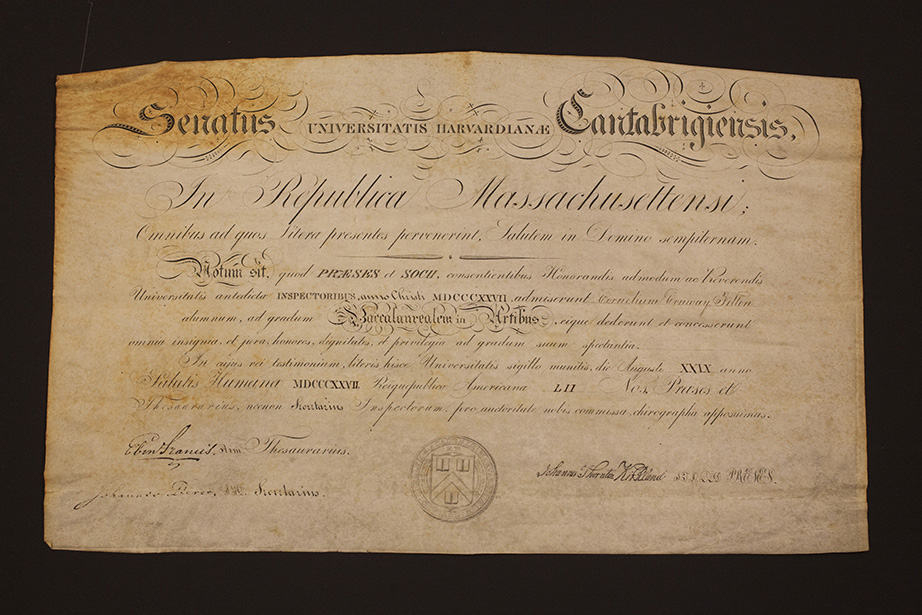 Senatus UNIVERSITATIS HARVARDIANÆ Cantabrigiensis,
In Republica Massachusettensi;
Omnibus ad quos Literæ presentes pervenerint, Salutem in Domino sempiternam.
Notum sit, quod PRÆSES et SOCII, consentientibus Honorandis admodum ac Reverendis
Universitatis antedictæ INSPECTORIBUS, anno Christi MDCCCXXVII, admiserunt Conway
alumnum, ad gradum Baccalaureatem in Artibus, eique dederunt et concesserunt
omnia insignia, et jura, honores, dignitates, et privilegia ad gradum suum spectantia.
In cujus rei testimonium, literis hisce Universitatis sigillo munitis, die Augusti XXIX anno
Salutis Humanæ MDCCCXXVII, Reiquepublicæ Americanæ LII Nos, Præses et
Thesaurarius, necnon Secretarius Inspectorum, pro auctoritate nobis commissa, chirographa apposuimus.
Eben Francis, Thesaurarius.
Johannes Thornton Kirkland PRÆSES.
Johannes Secretarius.